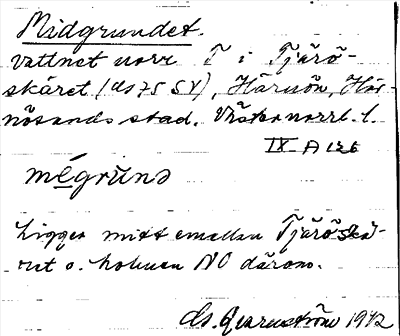 Midgrundet.
Vattnet norr T i Tjärö-
skäret (ds 75 SV), Härnön, Här-
nösands stad. Västernorrl. l.
IX A 126
mégrund
Ligger mitt emellan Tjäröskä-
ret o. holmen NO därom.
1942